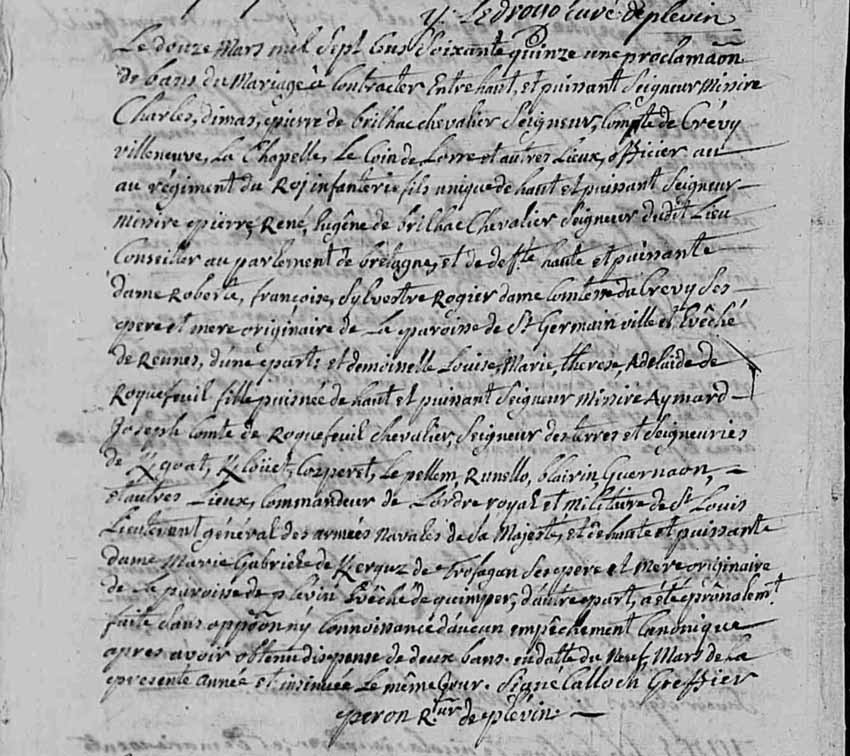 y. Ledroyo curé de plevin
Le douze Mars mil Sept Cens Soixante quinze une proclamaôn
de bans du Mariage à Contracter Entre haut, et puissant Seigneur Missire
Charles, dimas, pierre de brilhac chevalier Seigneur, Compte de Crévy
villeneuve, La Chapelle, Le Coin de Lorre et autres Lieux, officier au
au régiment du Roj infanterie fils unique de haut et puissant Seigneur
Missire pierre, René, Eugêne de brilhac Chevalier Seigneur dudit Lieu
Conseiller au parlement de bretagne, et de deffte haute et puissante
dame Roberte, françoise, Sylvestre Rogier dame Comtesse du Crevy Ses
pere et mere originaire de La paroisse de St Germain ville et Evêché
de Rennes, d'une part; et demoiselle Louise, Marie, therese Adelaide de
Roquefeuil fille puisnée de haut et puissant Seigneur Missire Aymard
Joseph Comte de Roquefeuil chevalier, Seigneur des terres et Seigneuries
de Kgoat, Klöuet, Corperet, Le pellem, Runello, blairin Guernaon,
et autres Lieux, Commandeur de L'ordre royal et militaire de St Louis
Lieutenant général des armées navales de Sa Majesté, et de haute et puissante
dame Marie Gabriele de Kerguz de Trofagan Ses pere et mere originaire
de La paroisse de plevin Evêché de quimper, d'autre part, a été prônalemt
faite sans appôon ny Connoissance d'aucun empêchement Canonique
apres avoir obtenu dispense de deux bans. en datte du Neuf Mars de La
presente année et insinuée Le même Jour. Signe Calloch Greffier
peron Rtur de plevin